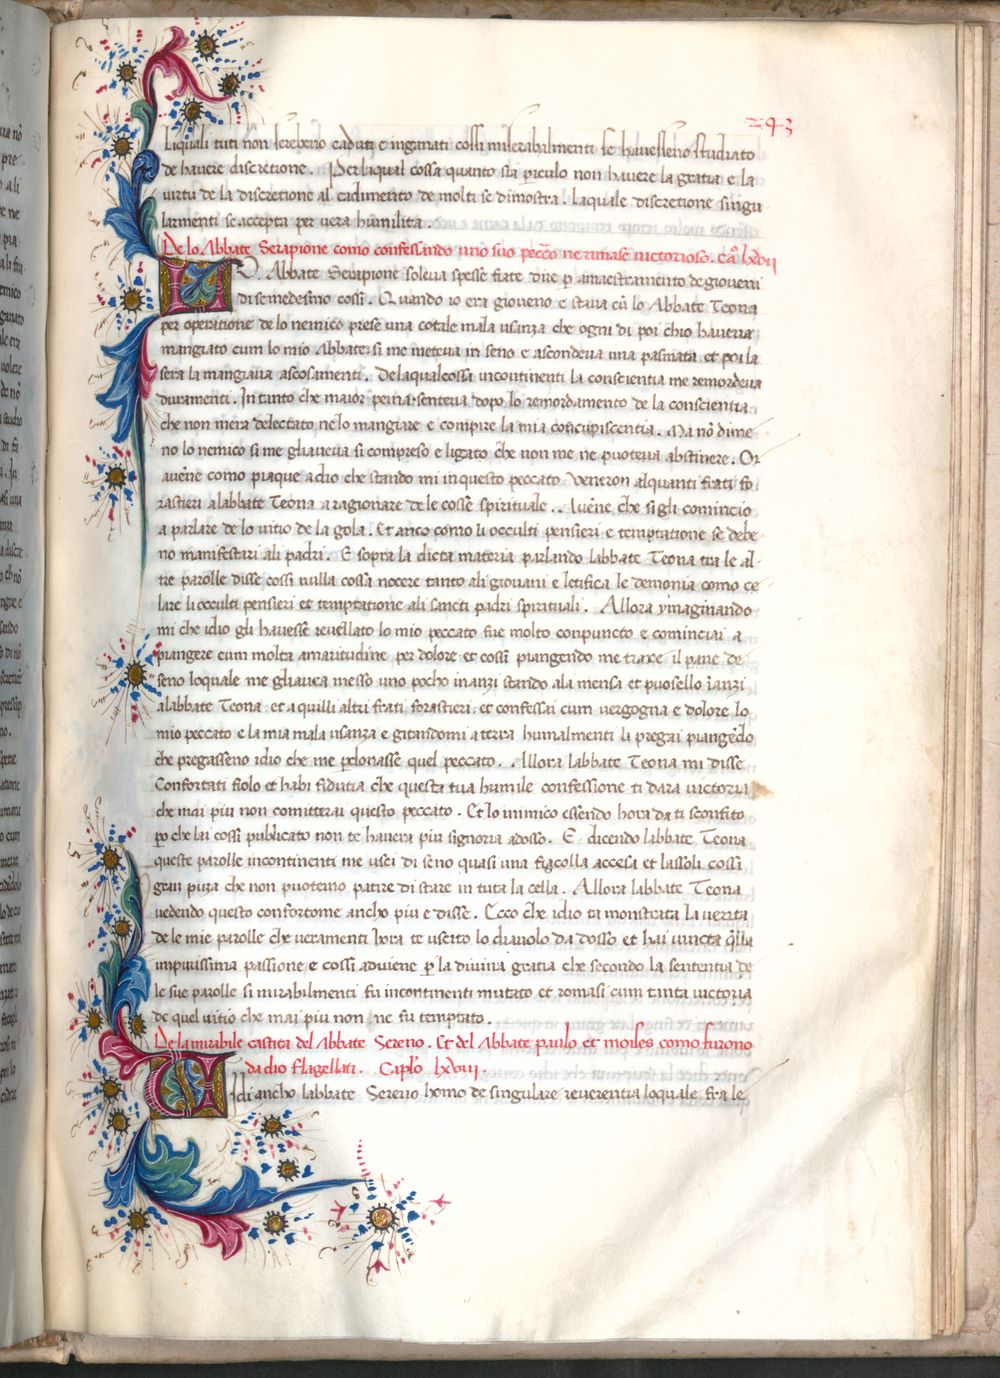 243
Liquali tuti non serebeno caduti e inganati cossi miserabalmenti se havesseno studiato
de havere discretione. Per laqual cossa quanto sia ꝑiculo non havere la gratia e la
virtu de la discretione al cadimento de molti se dimostra. Laquale discretione singu
larmenti se accepta per vera humilita.
De lo Abbate Serapione como confessando uno suo pecco ne rimase victorioso. ca. lxvij
Abbate Serapione soleva spesse fiate dire ꝑ amaestramento de gioveni
di se medesmo cossi. Quando io era gioveno e stava cu lo Abbate Teona
per operatione de lo nemico prese una cotale mala usanza che ogni di poi chio haveva
mangiato cum lo mio Abbate: si me meteva in seno e ascondeva una pasmata et poi la
sera la mangiava ascosamenti. Dela qual cossa incontinenti la conscientia me remordeva
duramenti. In tanto che maior pena senteva dopo lo remordamento de la conscientia
che non mera delectato ne lo mangiare e compire la mia cōcupiscentia. Ma nō dime
no lo nemico si me gli aveva si compreso e ligato che non me ne poteva abstinere. Or
avēne como piaque a dio che stando mi in questo peccato veneron alquanti frati fo
rastieri alabbate Teona a ragionare de le cosse spirituale. Avēne che si gli comincio
a parlare de lo vitio de la gola. Et anco como li occulti pensieri e temptatione se debe
no manifestari ali padri. E sopra la dicta materia parlando labbate Teona tra le al
tre parolle disse cossi nulla cossa nocere tanto ali giovani e letifica le demonia como ce
lare li occulti pensieri et temptatione ali sancti padri spirituali. Allora ymaginando
mi che idio gli havesse revellato lo mio peccato fue molto conpuncto e cominciai a
piangere cum molta amaritudine per dolore et cossi piangendo me traxe il pane de
seno loquale me gli avea messo uno pocho inanzi stando ala mensa et puosello ināzi
alabbate Teona et a quilli altri frati forastieri et confessai cum vergogna e dolore lo
mio peccato e la mia mala usanza e gitandomi a terra humalmenti li pregai piangēdo
che pregasseno idio che me ꝑdonasse quel peccato. Allora labbate Teona mi disse
Confortati fiolo et habi fidutia che questa tua humile confessione ti dara victoria
che mai piu non comitterai questo peccato. Et lo inimico essendo hora da ti sconfito
ꝑo che lai cossi publicato non te havera piu signoria adosso. E dicendo labbate Teona
queste parolle incontinenti me usci di seno quasi una fiacolla accesa et lassoli cossi
gran puza che non puotemo patire di stare in tuta la cella. Allora labbate Teona
vedendo questo confortome ancho piu e disse. Ecco che idio ta monstrata la verita
de le mie parolle che veramenti hora te uscito lo diavolo da dosso et hai vincta qlla
impurissima passione e cossi adviene ꝑ la divina gratia che secondo la sententia de
le sue parolle si mirabilmenti fu incontinenti mutato et romasi cum tanta victoria
de quel vitio che mai piu non ne fu temptato.
De la mirabile castita del Abbate Sereno. Et del Abbate paulo et moises como furono
da dio flagellati. Caplo. lxviij.
Vidi ancho labbate Sereno homo de singulare reverentia loquale fra le